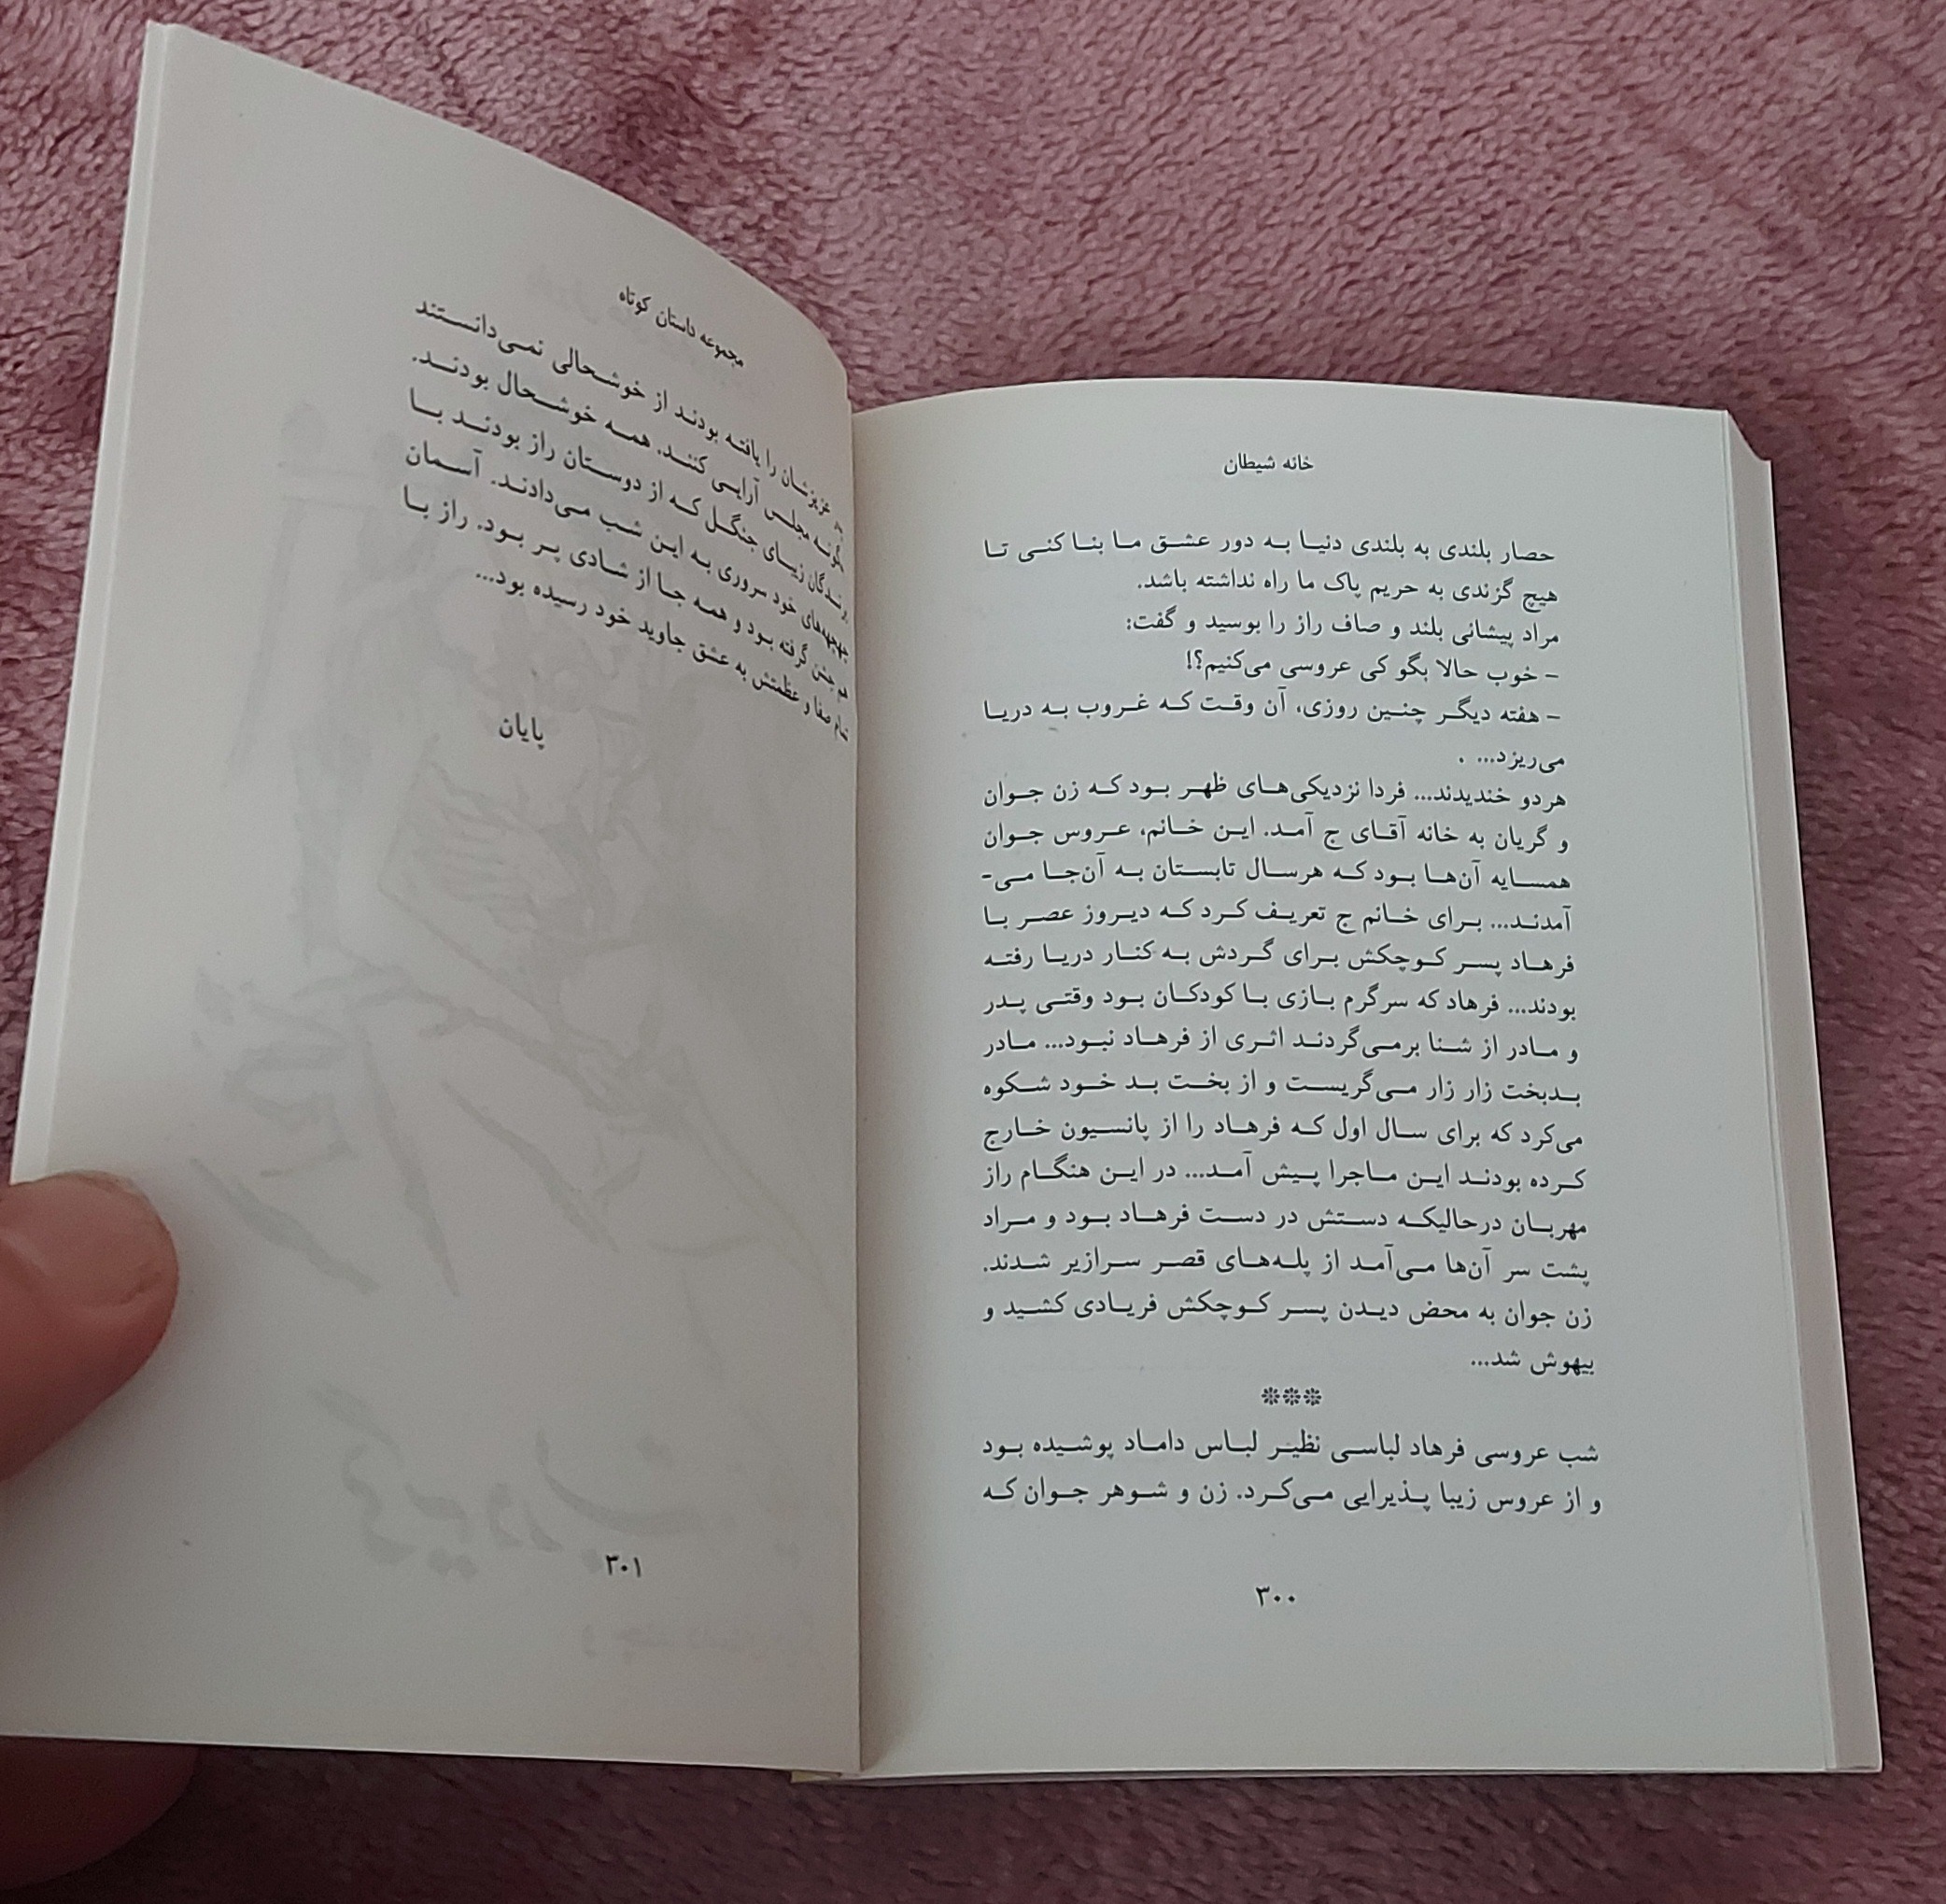 خانه شیطان
حصار بلندی به بلندی دنیا به دور عشق ما بنا کنی تا
هیچ گزندی به حریم پاک ما راه نداشته باشد.
مراد پیشانی بلند و صاف راز را بوسید و گفت:
- خوب حالا بگو کی عروسی می‌کنیم؟!
- هفته دیگر چنین روزی، آن وقت که غروب به دریا
می‌ریزد... .
هردو خندیدند... فردا نزدیکی‌های ظهر بود که زن جوان
و گریان به خانه آقای ج آمد. این خانم، عروس جوان
همسایه آن‌ها بود که هرسال تابستان به آن‌جا می-
آمدند... برای خانم ج تعریف کرد که دیروز عصر با
فرهاد پسر کوچکش برای گردش به کنار دریا رفته
بودند... فرهاد که سرگرم بازی با کودکان بود وقتی پدر
و مادر از شنا برمی‌گردند اثری از فرهاد نبود... مادر
بدبخت زار زار می‌گریست و از بخت بد خود شکوه
می‌کرد که برای سال اول که فرهاد را از پانسیون خارج
کرده بودند این ماجرا پیش آمد... در این هنگام راز
مهربان درحالیکه دستش در دست فرهاد بود و مراد
پشت سر آن‌ها می‌آمد از پله‌های قصر سرازیر شدند.
زن جوان به محض دیدن پسر کوچکش فریادی کشید و
بیهوش شد...
***
شب عروسی فرهاد لباسی نظیر لباس داماد پوشیده بود
و از عروس زیبا پذیرایی می‌کرد. زن و شوهر جوان که
۳۰۰
مجموعه داستان کوتاه
عزیزشان را یافته بودند از خوشحالی نمی‌دانستند
چگونه مجلس آرایی کنند. همه خوشحال بودند.
زیبای جنگل که از دوستان راز بودند با
چهچهه‌های خود سروری به این شب می‌دادند. آسمان
جشن گرفته بود و همه جا از شادی پر بود. راز با
صفا و عظمتش به عشق جاوید خود رسیده بود...
پایان
۳۰۱